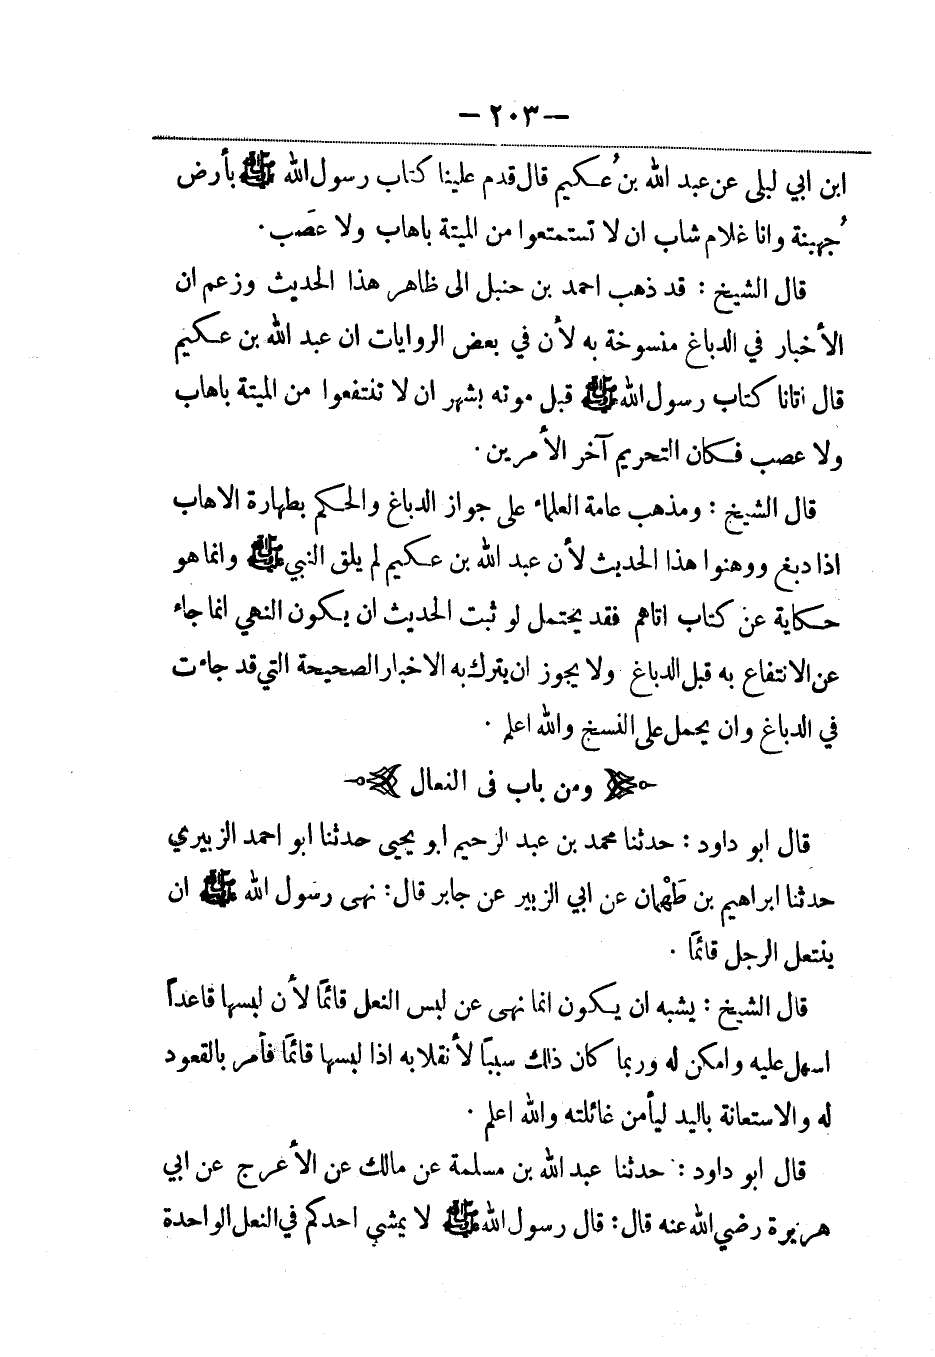 — ٢٠٣ —
ابن ابي ليلى عن عبد الله بن عُكيم قال قدم علينا كتاب رسول الله ﷺ بأرض
جُهينة وانا غلام شاب ان لا تستمتعوا من الميتة باهاب ولا عصَب ·
قال الشيخ : قد ذهب احمد بن حنبل الى ظاهر هذا الحديث وزعم ان
الأخبار في الدباغ منسوخة به لأن في بعض الروايات ان عبد الله بن عكيم
قال اتانا كتاب رسول الله ﷺ قبل موته بشهر ان لا تنتفعوا من الميتة باهاب
ولا عصب فكان التحريم آخر الأمرين ·
قال الشيخ : ومذهب عامة العلماء على جواز الدباغ والحكم بطهارة الاهاب
اذا دبغ ووهنوا هذا الحديث لأن عبد الله بن عكيم لم يلق النبي ﷺ وانما هو
حكاية عن كتاب اتاهم فقد يحتمل لو ثبت الحديث ان يكون النهي انما جاء
عن الانتفاع به قبل الدباغ ولا يجوز ان يترك به الاخبار الصحيحة التي قد جاءت
في الدباغ وان يحمل على النسخ والله اعلم ·
ومن باب فى النعال
قال ابو داود : حدثنا محمد بن عبد الرحيم ابو يحيى حدثنا ابو احمد الزبيري
حدثنا ابراهيم بن طَهْمان عن ابي الزبير عن جابر قال : نهى رسول الله ﷺ ان
ينتعل الرجل قائمًا ·
قال الشيخ : يشبه ان يكون انما نهى عن لبس النعل قائمًا لأن لبسها قاعداً
اسهل عليه وامكن له وربما كان ذلك سببًا لأنقلابه اذا لبسها قائمًا فأمر بالقعود
له والاستعانة باليد ليأمن غائلته والله اعلم ·
قال ابو داود : حدثنا عبد الله بن مسلمة عن مالك عن الأعرج عن ابي
هريرة رضي الله عنه قال : قال رسول الله ﷺ لا يمشي احدكم في النعل الواحدة